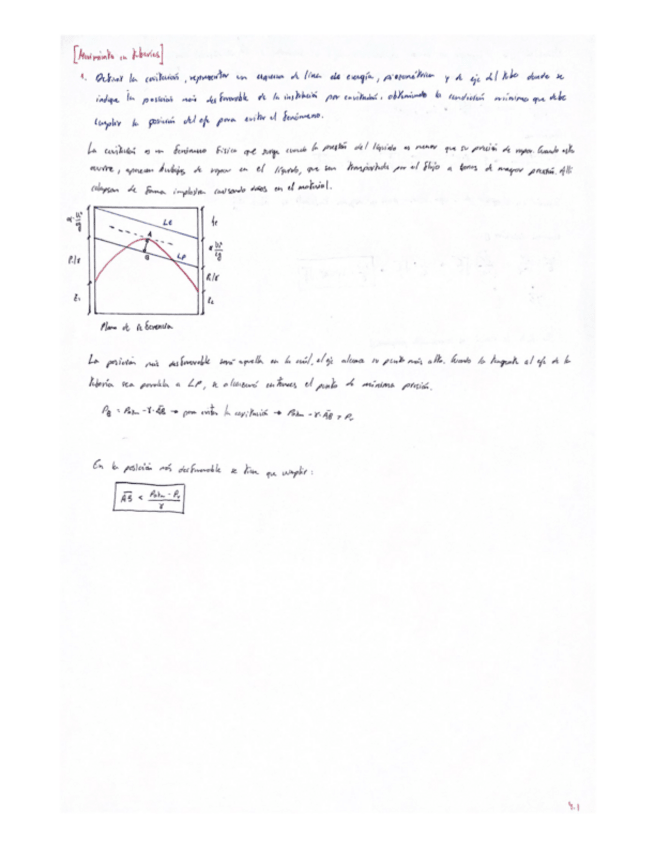 [Movimiento en tuberías]
1. Definir la cavitación, representar un esquema de línea de energía, piezométrica y de eje del tubo donde se
indique la posición más desfavorable de la instalación por cavitación, obteniendo la condición mínima que debe
cumplir la posición del eje para evitar el fenómeno.
La cavitación es un fenómeno físico que surge cuando la presión del líquido es menor que su presión de vapor. Cuando esto
ocurre, aparecen burbujas de vapor en el líquido, que son transportadas por el flujo a zonas de mayor presión. Allí
colapsan de forma implosiva causando daños en el material.
LE
A
B
LP
P₁/γ
z₁
P₂/γ
z₂
Plano de Referencia
La posición más desfavorable será aquella en la cual, el eje alcance su punto más alto. Cuando la tangente al eje de la
tubería sea paralela a LP, se alcanzará entonces el punto de mínima presión.
P_B = Patm - γ·AB → para evitar la cavitación → Patm - γ·AB > Pv
En la posición más desfavorable se tiene que cumplir:
AB < (Patm - Pv)/γ
4.1